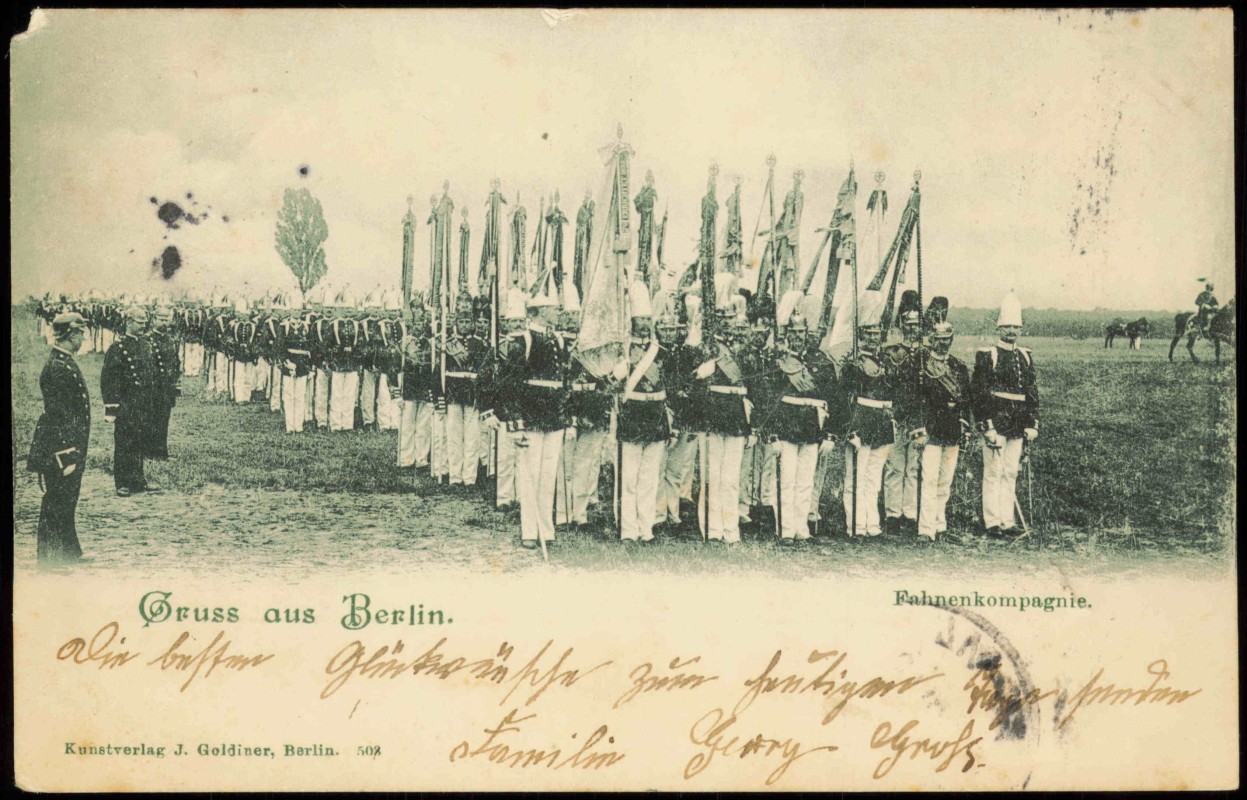 Gruss aus Berlin.
Fahnenkompagnie.
Die besten Glückwünsche zum heutigen Tage senden
Familie Georg Groß.
Kunstverlag J. Goldiner, Berlin. 508